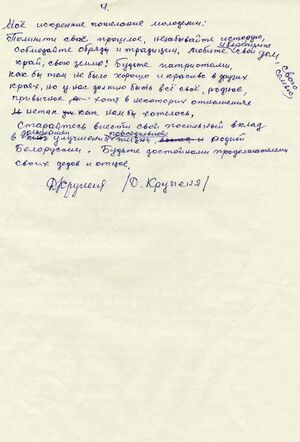 4.
Моё искреннее пожелание молодёжи:
Помните своё прошлое, незабывайте историю,
соблюдайте обряды и традиции, любите свой дом,
свою семью,
край, свою землю! Будьте патриотами,
как бы там не было хорошо и красиво в других
краях, но у нас должно быть всё своё, родное,
привычное хотя в некоторых отношениях
и не так как нам бы хотелось.
Старайтесь внести свой посильный вклад
в дальнейшем улучшении жизни родной
Белоруссии. Будьте достойными продолжателями
своих дедов и отцов.
/Д. Крупеня/